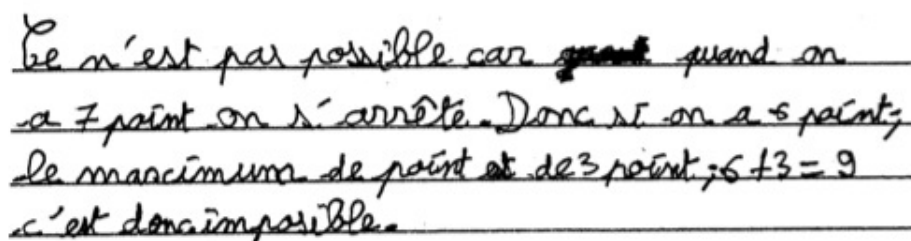 Ce n'est pas possible car quand on
a 7 point on s'arrête. Donc si on a 6 point,
le mancimum de point et de 3 point ; 6 + 3 = 9
c'est donc imposible.